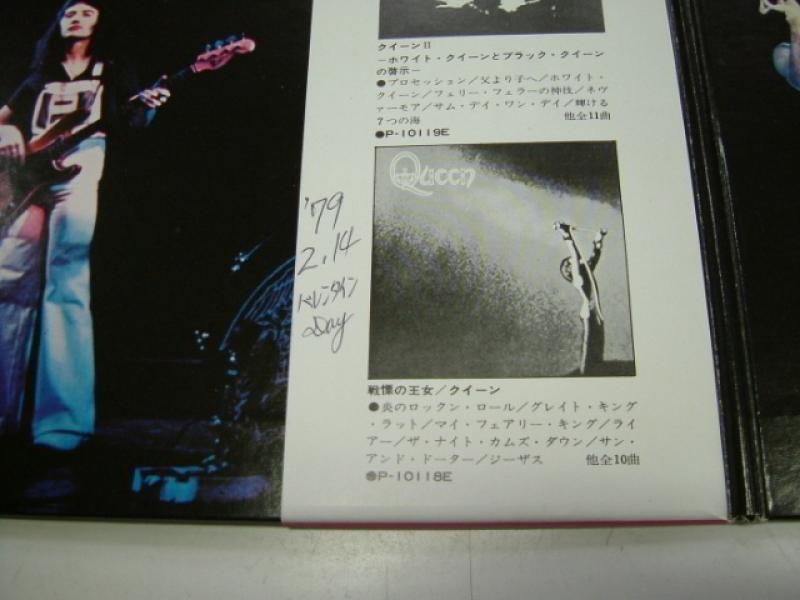 クイーンII
−ホワイト・クイーンとブラック・クイーン
の啓示−
●プロセッション／父より子へ／ホワイト・
クイーン／フェリー・フェラーの神技／ネヴ
ァーモア／サム・デイ・ワン・デイ／輝ける
7つの海 他全11曲
●P-10119E
Queen
'79
2.14
バレンタイン
Day
戦慄の王女／クイーン
●炎のロックン・ロール／グレイト・キング
・ラット／マイ・フェアリー・キング／ライ
アー／ザ・ナイト・カムズ・ダウン／サン・
アンド・ドーター／ジーザス 他全10曲
●P-10118E